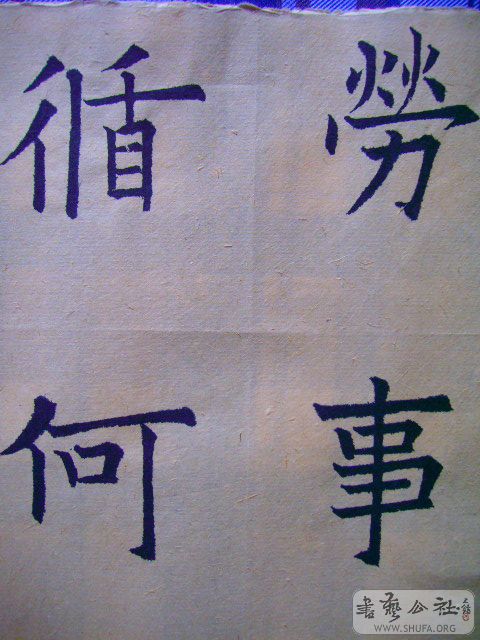 勞事
循何
書藝公社
WWW.SHUFA.ORG